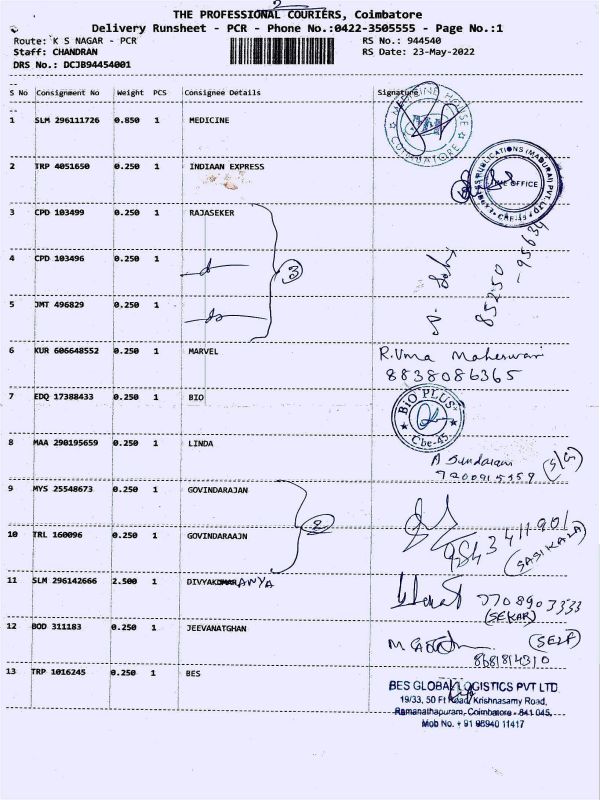 2
THE PROFESSIONAL COURIERS, Coimbatore
Delivery Runsheet - PCR - Phone No.:0422-3505555 - Page No.:1
Route: K S NAGAR - PCR RS No.: 944540
Staff: CHANDRAN RS Date: 23-May-2022
DRS No.: DCJB94454001
S No Consignment No Weight PCS Consignee Details Signature
MEDICINE HOUSE
COIMBATORE
1 SLM 296111726 0.850 1 MEDICINE
2 TRP 4051650 0.250 1 INDIAAN EXPRESS
PUBLICATIONS (MADURAI) PVT. LTD
OFFICE
CBE-45
3 CPD 103499 0.250 1 RAJASEKER
4 CPD 103496 0.250 1
3
85250
-95634
5 JMT 496829 0.250 1
6 KUR 606648552 0.250 1 MARVEL R.Uma Maheswari
8838086365
7 EDQ 17388433 0.250 1 BIO
BIO PLUS
Cbe-45
8 MAA 290195659 0.250 1 LINDA
A Sundaram
(S/G)
9 MYS 25548673 0.250 1 GOVINDARAJAN
2
10 TRL 160096 0.250 1 GOVINDARAAJN
(SASIKALA)
11 SLM 296142666 2.500 1 DIVYAKUMARANYA
7708903333
(SEKAR)
12 BOD 311183 0.250 1 JEEVANATGHAN
(SELF)
8681814310
13 TRP 1016245 0.250 1 BES
BES GLOBAL LOGISTICS PVT LTD.
19/33, 50 Ft Road, Krishnasamy Road,
Ramanathapuram, Coimbatore - 641 045.
Mob No. + 91 98940 11417